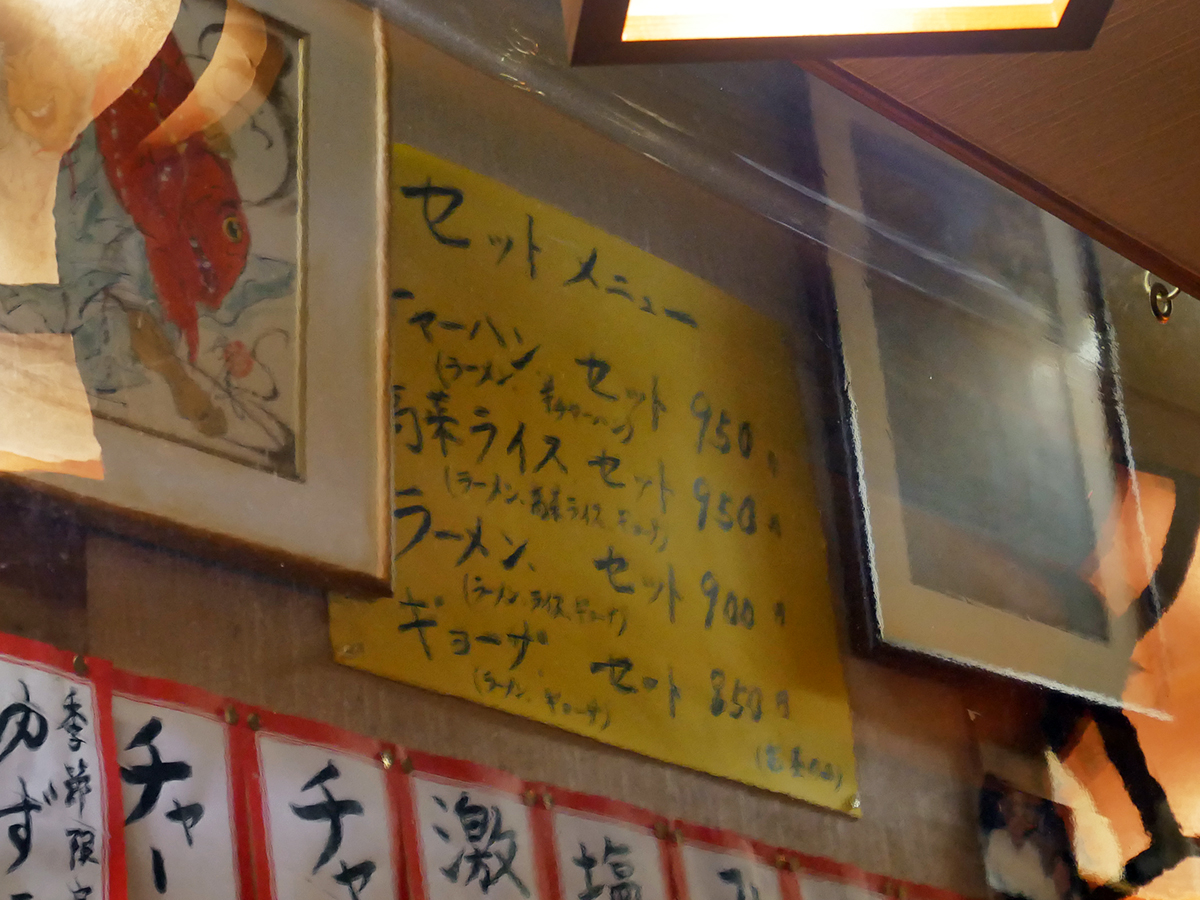 セットメニュー
ャーハン セット 950円
(ラーメン、半チャーハン)
高菜ライス セット 950円
(ラーメン、高菜ライス、ギョーザ)
ラーメン、セット 900円
(ラーメン、ライス、ギョーザ)
ギョーザ セット 850円
(ラーメン、ギョーザ)
季節限定
ゆず
チャー
チャ
激
塩